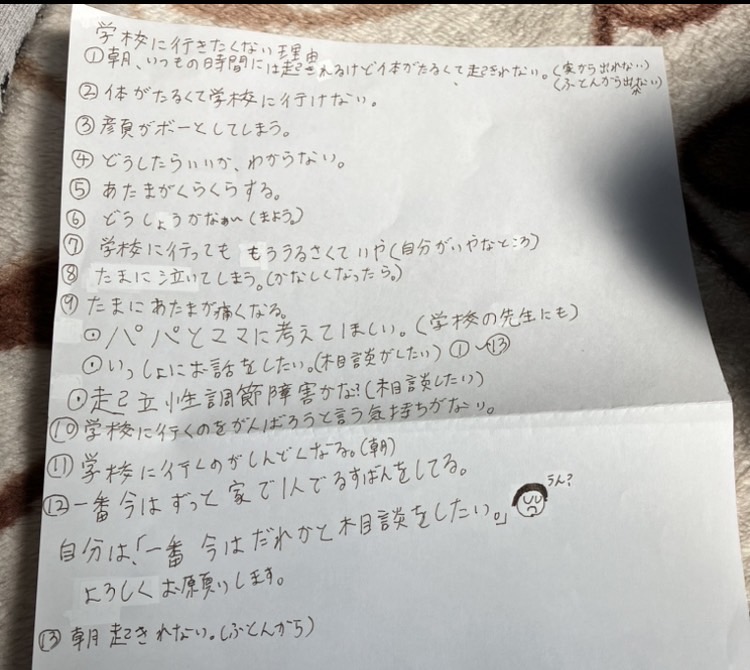 学校に行きたくない理由
①朝、いつもの日時間には起きれるけど体がたるくて、起きれない。(家から出れない)
(ふとんから出ない)
②体がたるくて学校に行けない。
③顔がボーとしてしまう。
④どうしたらいいか、わからない。
⑤あたまがくらくらする。
⑥どうしょうかなぁ〜(まよう。)
⑦学校に行っても もううるさくていや(自分がいやなところ)
⑧たまに泣いてしまう。(かなしくなったら。)
⑨たまにあたまが痛くなる。
⊙パパとママに考えてほしい。(学校の先生にも)
⊙いっしょにお話をしたい。(相談がしたい)①〜⑬
⊙起立性調節障害かな?(相談したい)
⑩学校に行くのをがんばろうと言う気持ちがない。
⑪学校に行くのがしんどくなる。(朝)
⑫一番今はずっと家で1人でるすばんをしてる。
うん?
自分は、「一番今はだれかと相談をしたい。」
よろしくお願いします。
⑬朝起きれない。(ふとんから)